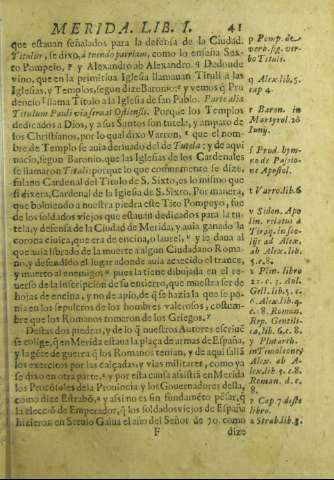 MERIDA. LIB. I. 41
que estauan señalados para la defensa de la Ciudad.
Titulus, se dixo, à tuendo patriam, como lo enseña Sax-
to Pompeio, P y Alexandro ab Alexandro. q Dadonde
vino, que en la primitiua Iglesia llamauan Tituli a las
Iglesias, y Templos, segun dize Baronio: r y vemos q̃ Pru
dencio s llama Titulo a la Iglesia de san Pablo. Parte alia
Titulum Pauli via seruat Ostiensis. Porque los Templos
dedicados à Dios, y a sus Santos son tutela, y amparo de
los Christianos, por lo qual dixo Varron, t que el nom-
bre de Templo se auia deriuado del de Tutela: y de aqui
nacio, segun Baronio, que las Iglesias de los Cardenales
se llamaron Titulos: porque lo que commmente se dize,
fulano Cardenal del Titulo de S. Sixto, es lo mismo que
si dixera, Cardenal de la Iglesia de S. Sixto. Por manera,
que boluiendo a nuestra piedra este Tito Pompeyo, fue
de los soldados viejos que estauan dedicados para la tu-
tela, y defensa de la Ciudad de Merida, y auia ganado la
corona ciuica, que era de encina, o laurel, u y se daua al
que auia librado de la muerte a algun Ciudadano Roma-
no, y defendido el lugar adonde auia acaecido el trance,
y muerto al enemigo, x pues la tiene dibujada en el re-
uerso de la inscripcion de su encierro, que muestra ser de
hojas de encina, y no de apio, de q̃ se hazia la que se po-
nia en los sepulcros de los hombres valerosos, costum-
bre que los Romanos tomaron de los Griegos. y
Destas dos piedras, y de lo q̃ nuestros Autores escriuẽ
se colige, q̃ en Merida estaua la plaça de armas de España,
y la gẽte de guerra q̃ los Romanos tenian, y de aqui salia
los exercitos por las calçadas, y vias militares, como ya
se dixo en otra parte, z y por esta causa assistia en Merida
los Procõsules de la Prouincia, y los Gouernadores della,
como dize Estrabõ, a y assi no es sin fundamẽto pẽsar, q̃
la elecciõ de Emperador, q̃ los soldados viejos de España
hizieron en Seruio Galua el año del Señor de 70. como
F dize
p Pomp. de
verb. sig. ver-
bo Tituli.
q Alex. lib. 5.
cap 4.
r Baron. in
Martyrol. 26
Iunij.
s Prud. hym-
no de Passio-
ne Apostol.
t Varro lib. 6
x Plin. libro
Gell. lib. 5. c.
6. Alex. lib. 4.
c. 18. Roman.
Rep. Gentili-
ca, lib. 6. c. 8.
y Plutarch.
in Timoleone;
Alex. ab A-
lex. lib 5. c. 8.
Roman. d. c.
8.
z Cap. 7 deste
libro.
a Strab. lib. 3.